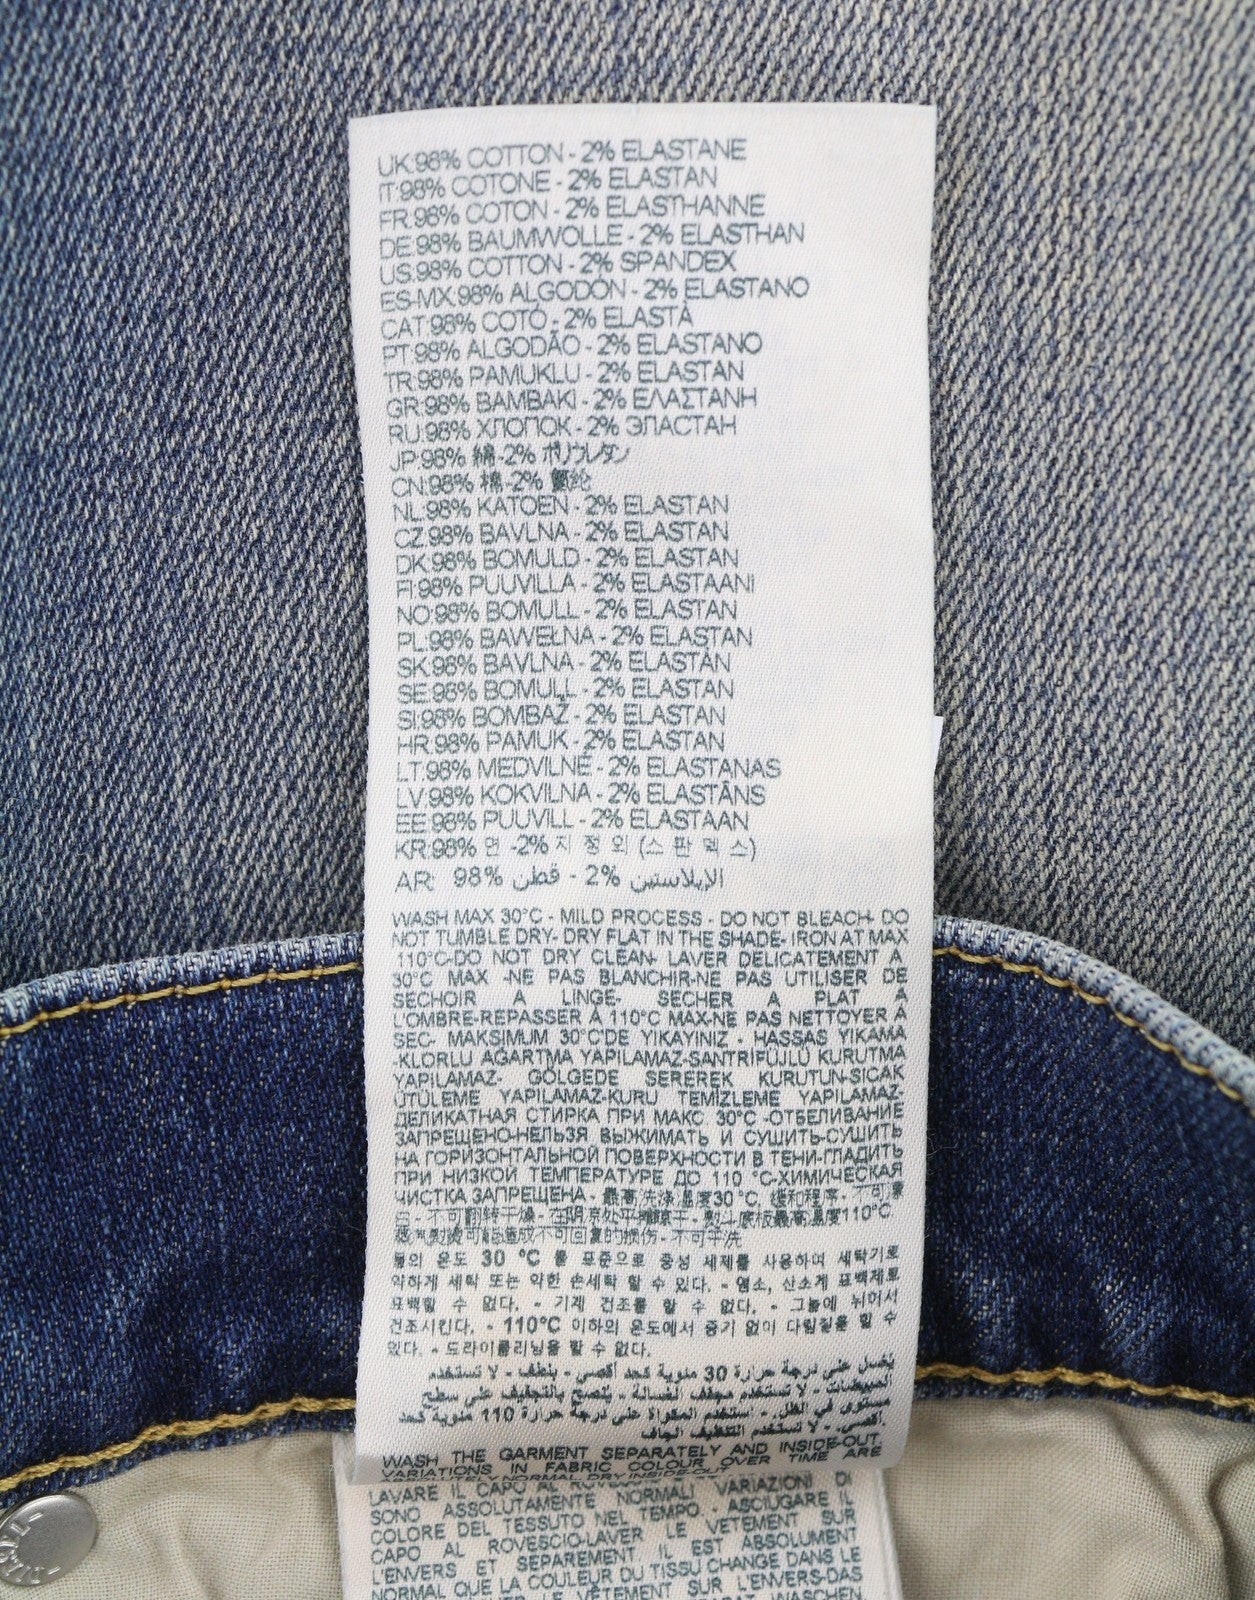 UK:98% COTTON - 2% ELASTANE
IT:98% COTONE - 2% ELASTAN
FR:98% COTON - 2% ELASTHANNE
DE:98% BAUMWOLLE - 2% ELASTHAN
US:98% COTTON - 2% SPANDEX
ES-MX:98% ALGODÓN - 2% ELASTANO
CAT:98% COTÓ - 2% ELASTÀ
PT:98% ALGODÃO - 2% ELASTANO
TR:98% PAMUKLU - 2% ELASTAN
GR:98% BAMBAKI - 2% ΕΛΑΣΤΑΝΗ
RU:98% ХЛОПОК - 2% ЭЛАСТАН
JP:98% 綿 -2% ポリウレタン
CN:98% 棉 -2%
NL:98% KATOEN - 2% ELASTAN
CZ:98% BAVLNA - 2% ELASTAN
DK:98% BOMULD - 2% ELASTAN
FI:98% PUUVILLA - 2% ELASTAANI
NO:98% BOMULL - 2% ELASTAN
PL:98% BAWEŁNA - 2% ELASTAN
SK:98% BAVLNA - 2% ELASTAN
SE:98% BOMULL - 2% ELASTAN
SI:98% BOMBAŽ - 2% ELASTAN
HR:98% PAMUK - 2% ELASTAN
LT:98% MEDVILNĖ - 2% ELASTANAS
LV:98% KOKVILNA - 2% ELASTĀNS
EE:98% PUUVILL - 2% ELASTAAN
KR:98% 면 -2% 지 정 외 (스 판 덱 스)
AR: 98% قطن - 2% الإيلاستين
WASH MAX 30°C - MILD PROCESS - DO NOT BLEACH- DO
NOT TUMBLE DRY- DRY FLAT IN THE SHADE- IRON AT MAX
110°C-DO NOT DRY CLEAN- LAVER DELICATEMENT A
30°C MAX -NE PAS BLANCHIR-NE PAS UTILISER DE
SECHOIR A LINGE- SECHER A PLAT A
L'OMBRE-REPASSER À 110°C MAX-NE PAS NETTOYER A
SEC- MAKSIMUM 30°C'DE YIKAYINIZ - HASSAS YIKAMA
-KLORLU AĞARTMA YAPILAMAZ-SANTRİFÜJLÜ KURUTMA
YAPILAMAZ- GÖLGEDE SEREREK KURUTUN-SICAK
ÜTÜLEME YAPILAMAZ-KURU TEMİZLEME YAPILAMAZ-
ДЕЛИКАТНАЯ СТИРКА ПРИ МАКС 30°C -ОТБЕЛИВАНИЕ
ЗАПРЕЩЕНО-НЕЛЬЗЯ ВЫЖИМАТЬ И СУШИТЬ-СУШИТЬ
НА ГОРИЗОНТАЛЬНОЙ ПОВЕРХНОСТИ В ТЕНИ-ГЛАДИТЬ
ПРИ НИЗКОЙ ТЕМПЕРАТУРЕ ДО 110 °C-ХИМИЧЕСКАЯ
ЧИСТКА ЗАПРЕЩЕНА - 最高洗涤温度30°C, 缓和程序 - 不可漂
白 - 不可翻转干燥 - 在阴凉处平摊晾干 - 熨斗底板最高温度110°C
可能造成不可回复的损伤 - 不可干洗
물의 온도 30 °C 를 표준으로 중성 세제를 사용하여 세탁기로
약하게 세탁 또는 약한 손세탁 할 수 있다. - 염소, 산소계 표백제로
표백할 수 없다. - 기계 건조를 할 수 없다. - 그늘에 뉘어서
건조시킨다. - 110°C 이하의 온도에서 증기 없이 다림질을 할 수
있다. - 드라이클리닝을 할 수 없다.
يغسل على درجة حرارة 30 مئوية كحد أقصى - بلطف - لا تستخدم
المبيضات - لا تستخدم مجفف الغسالة - ينصح بالتجفيف على سطح
مستوى في الظل - تستخدم المكواة على درجة حرارة 110 مئوية كحد
أقصى - لا تستخدم التنظيف الجاف
WASH THE GARMENT SEPARATELY AND INSIDE-OUT.
VARIATIONS IN FABRIC COLOUR OVER TIME ARE
ABSOLUTELY NORMAL. DRY INSIDE-OUT
LAVARE IL CAPO AL VARIAZIONI DI
SONO ASSOLUTAMENTE NORMALI
COLORE DEL TESSUTO NEL TEMPO - ASCIUGARE IL
CAPO AL ROVESCIO-LAVER LE VETEMENT SUR
L'ENVERS ET SEPAREMENT. IL EST ABSOLUMENT
NORMAL QUE LA COULEUR DU TISSU CHANGE DANS LE
LE VÊTEMENT SUR L'ENVERS-DAS
WASCHEN.